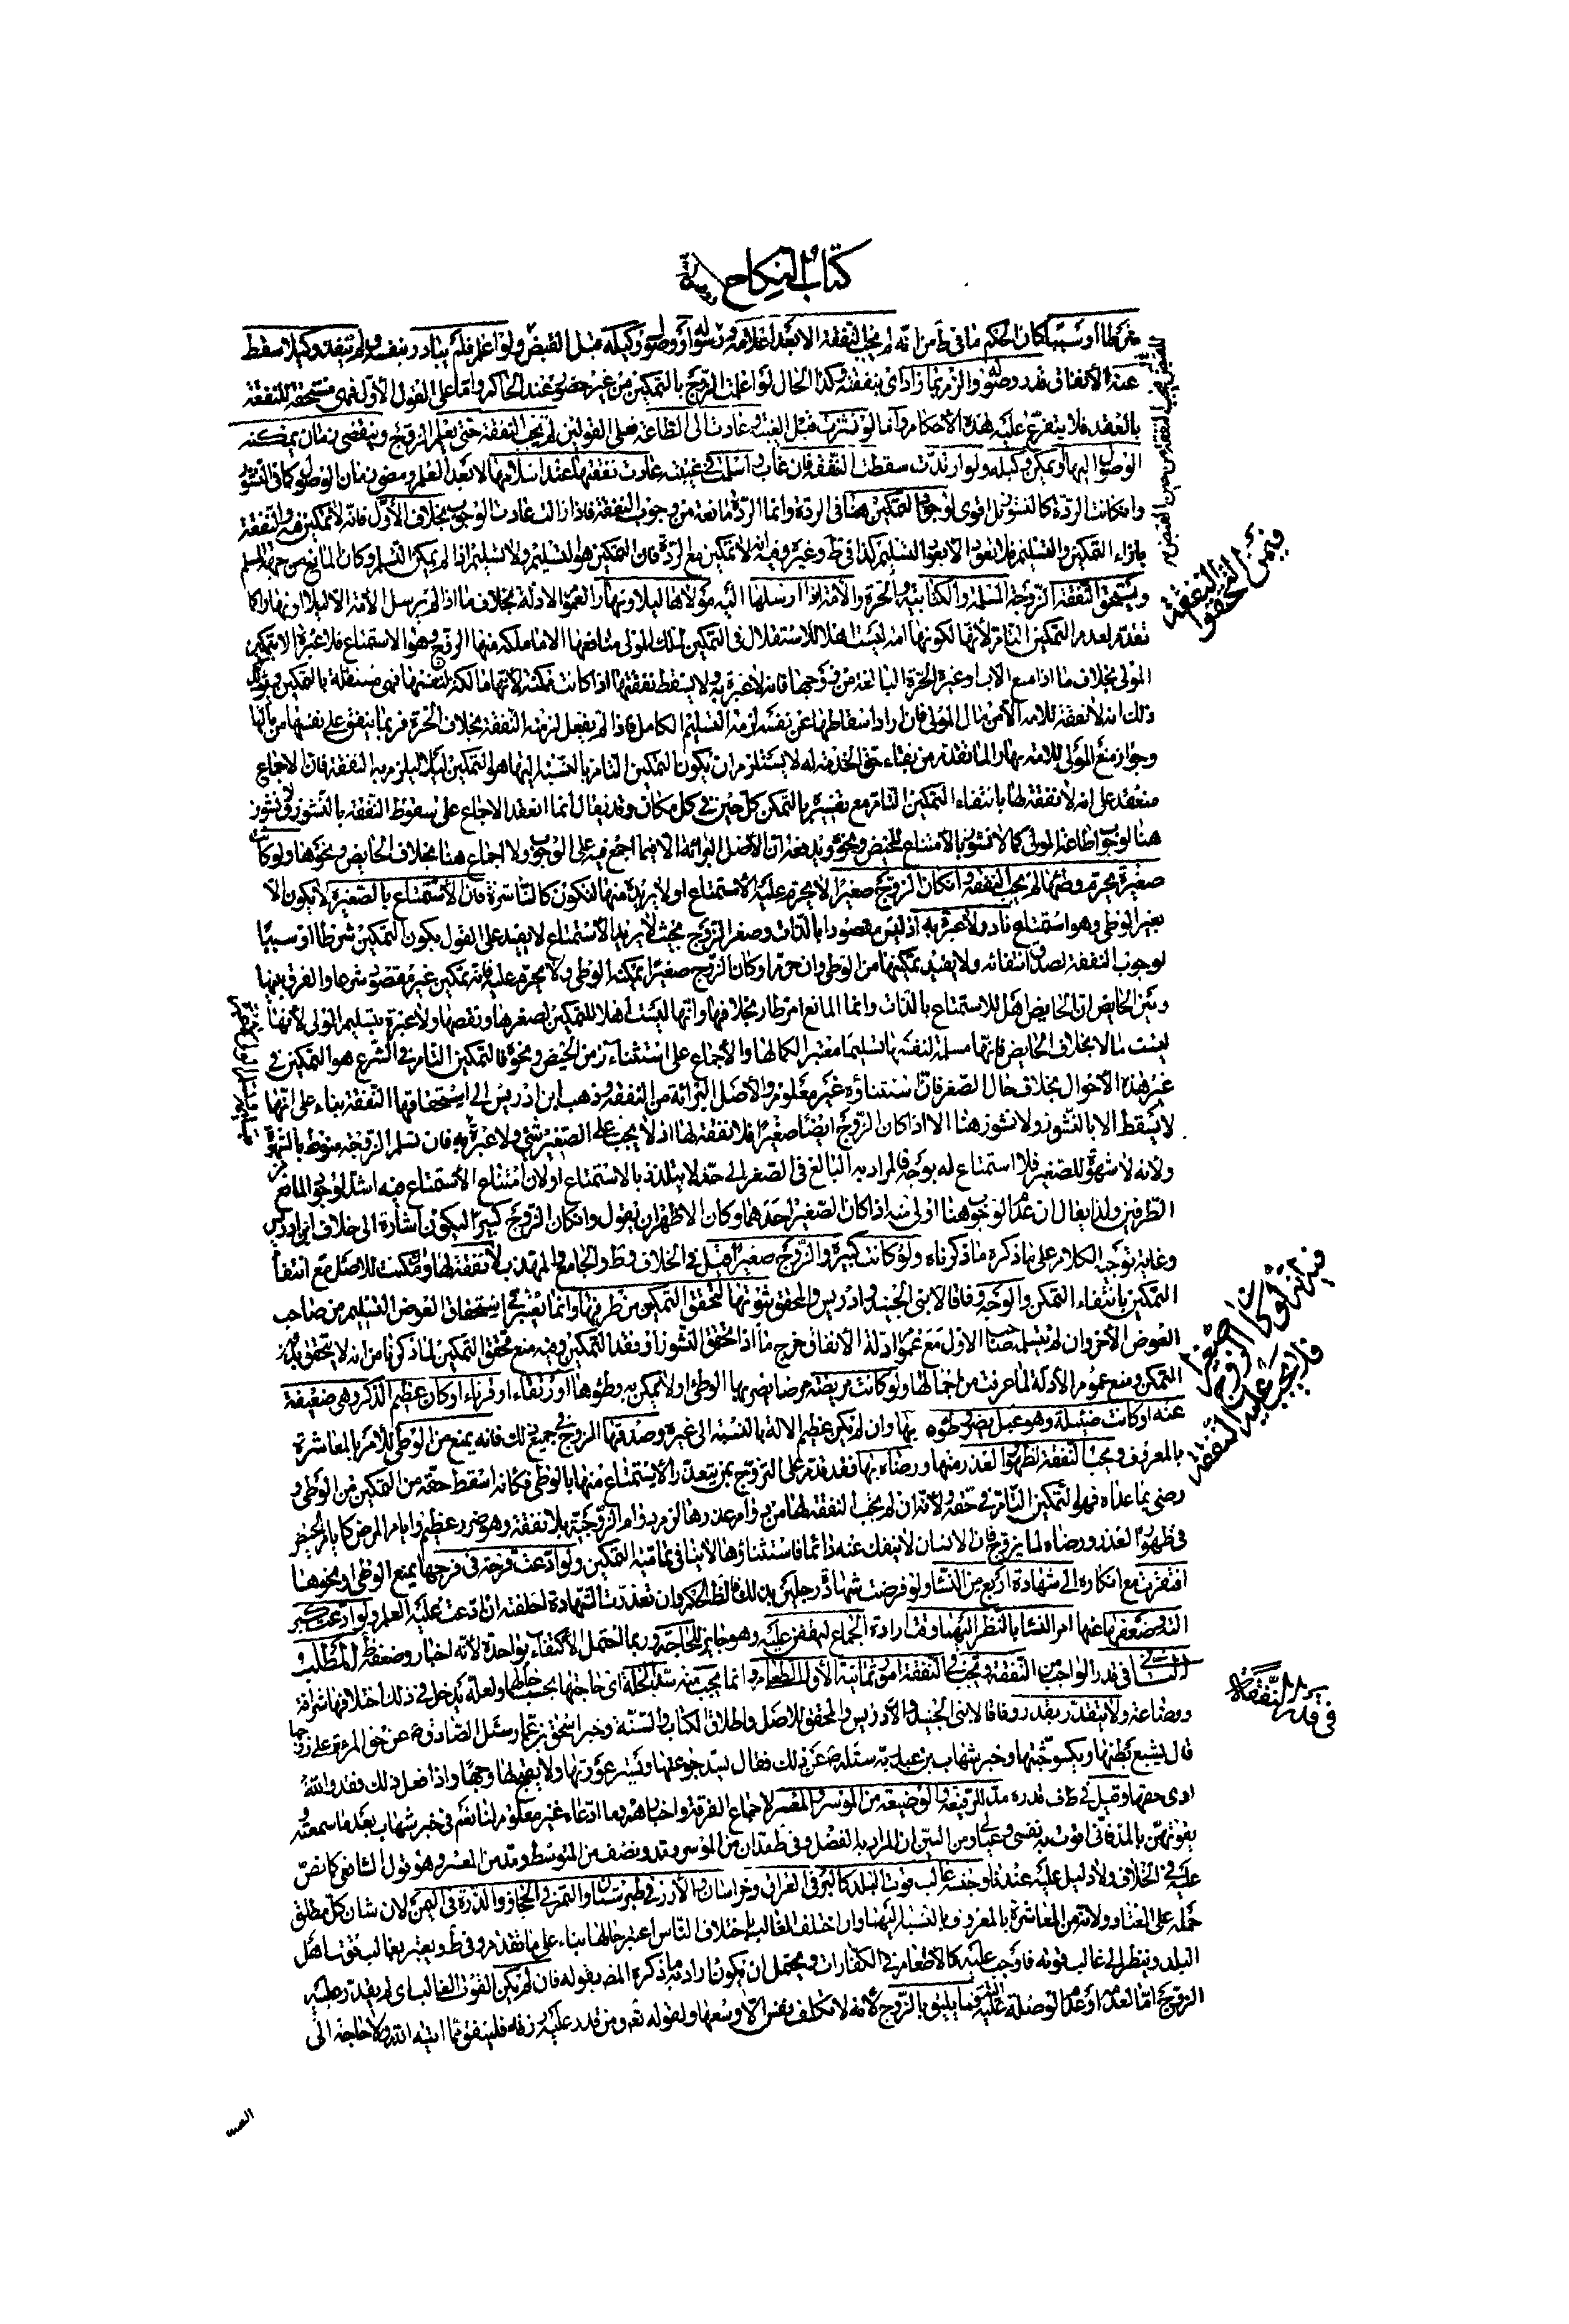 كتاب النكاح
شرطا او سببا كان الحكم ما في ط من انه لم يجب النفقة الا بعد اعلامه ووصوله او وصول وكيله قبل القبض ولو اعلم فلم يبادر بنفسه ولم ينفذ وكيلا سقط
عنه الانفاق قدر وصوله والزم بما زاد اي بنفقته وكذا الحال لو اعلمت الزوج بالتمكين من غير حضور عند الحاكم واما على القول الاول فهي مستحقة للنفقة
بالعقد فلا يتفرع عليه هذه الاحكام واما لو نشزت قبل الغيبة وعادت الى الطاعة فعلى القولين لم يجب النفقة حتى يعلم الزوج وينقضي زمان يمكنه
الوصول اليها او يمكن وكيله ولو ارتدت سقطت النفقة فان غاب واسلمت في غيبته عادت نفقتها عند اسلامها لا بعد العلم ومضى زمان الوصول كما في النشوز
وان كانت الردة كالنشوز بل اقوى لوجود التمكين هنا في الردة وانما الردة مانعة من وجوب النفقة فاذا زالت عادت الوجوب بخلاف الاول فانه لا تمكين فيه والنفقة
بازاء التمكين والتسليم فلا يعود الا بعود التسليم كذا في ط وغيره وفيه انه لا تمكين مع الردة فان التمكين هو التسليم ولا تسليم اذا لم يمكن التسلم وكان المانع من جهة المسلم
ويستحق النفقة الزوجة المسلمة والكتابية والحرة والامة اذا ارسلها اليه مولاها ليلا ونهارا لعموم الادلة بخلاف ما اذا لم يرسل الامة الا ليلا او نهارا كما
تقدم لعدم التمكين التام لانها لكونها امة ليست اهلا للاستقلال في التمكين لملك المولى منافعها الا ما ملكه منها الزوج وهو الاستمتاع فلا عبرة الا بتمكين
المولى بخلاف ما اذا منع الاب او غيره الحرة البالغة من زوجها فانه لا عبرة به ولا يسقط نفقتها اذا كانت ممكنة لانها مالكة لنفسها فهي مستقلة بالتمكين ويؤكد
ذلك انه لا نفقة للامة الا من مال المولى فان اراد اسقاطها عن نفسه لزمه التسليم الكامل فاذا لم يفعل لزمته النفقة بخلاف الحرة فربما ينفق على نفسها من مالها
وجواز منع المولى للامة نهارا لما تقدم من بقاء حق الخدمة له لا يستلزم ان يكون التمكين التام بالنسبة اليها هو التمكين ليلا ليلزم به النفقة فان الاجماع
منعقد على انه لا نفقة لها بانتفاء التمكين التام مع تفسيره بالتمكن كل حين في كل مكان وقد يقال انما انعقد الاجماع على سقوط النفقة بالنشوز ولا نشوز
هنا لوجوب اطاعة المولى كما لا نشوز بالامتناع للحيض ونحوه ويدفعه ان الاصل البرائة الا فيما اجمع فيه على الوجوب ولا اجماع هنا بخلاف الحايض ونحوها ولو كانت
صغيرة يحرم وطئها لم يجب النفقة وان كان الزوج صغيرا لا يحرم عليه الاستمتاع او لا يريده منها لتكون كالناشزة فان الاستمتاع بالصغيرة لا يكون الا
بغير الوطي وهو استمتاع نادر ولا عبرة به اذ ليس مقصودا بالذات وصغر الزوج بحيث لا يريد الاستمتاع لا يفيد على القول بكون التمكين شرطا او سببا
لوجوب النفقة لصدق انتفائه ولا يفيد تمكينها من الوطي وان حرم او كان الزوج صغيرا يمكنه الوطي ولا يحرم عليه فانه تمكين غير مقصود شرعا والفرق بينها
وبين الحايض ان الحايض اهل للاستمتاع بالذات وانما المانع امر طار بخلافها وانها ليست اهلا للتمكين لصغرها ونقصها ولا عبرة بتسليم الولي لانها
ليست مالا بخلاف الحايض فانها مسلمة لنفسها تسليما معتبرا لكمالها والاجماع على استثناء زمن الحيض ونحوه فالتمكين التام في الشرع هو التمكين في
غير هذه الاحوال بخلاف حال الصغر فان استثناؤه غير معلوم والاصل البرائة من النفقة وذهب ابن ادريس الى استحقاقها النفقة بناء على انها
لا يسقط الا بالنشوز ولا نشوز هنا الا اذا كان الزوج ايضا صغيرا فلا نفقة لها اذ لا يجب على الصغير شئ ولا عبرة به فان تسلم الزوجة منوط بالشهوة
ولانه لا شهوة للصغير فلا استمتاع له بوجه فالمراد به البالغ في الصغر الى حد لا يتلذذ بالاستمتاع او لان امتناع الاستمتاع منه اشد لوجود المانع من
الطرفين ولذا يقال ان عدم الوجوب هنا اولى منه اذا كان الصغير احدهما وكان الاظهر ان يقول وان كان الزوج كبيرا ليكون اشارة الى خلاف ابن ادريس
وغاية توجيه الكلام على ما ذكره ما ذكرناه ولو كانت كبيرة والزوج صغيرا قيل في الخلاف وط والجامع والمهذب لا نفقة لها وان مكنت للاصل مع انتفاء
التمكين بانتفاء التمكن والوجه وفاقا لابني الجنيد وادريس والمحقق ثبوتها لتحقق التمكين من طرفها وانما يعتبر في استحقاق العوض التسليم من صاحب
العوض الاخر وان لم يتسلم صاحب الاول مع عموم ادلة الانفاق خرج ما اذا تحقق النشوز او فقد التمكين وفيه منع تحقق التمكين لما ذكرنا من انه لا يتحقق بدون
التمكن ومنع عموم الادلة لما عرفت من اجمالها ولو كانت مريضة مرضا يضر بها الوطئ او لا يمكن به وطئها او رتقاء او قرناء او كان عظيم الذكر وهي ضعيفة
عنه او كانت ضئيلة وهو عبل يضر وطئوه بها وان لم يكن عظيم الالة بالنسبة الى غيره وصدقها الزوج في جميع ذلك فانه يمنع من الوطي للامر بالمعاشرة
بالمعروف ويجب النفقة لظهور العذر منها ورضاه بها فقد قدم على التزوج بمن يتعذر الاستمتاع منها بالوطي فكانه اسقط حقه من التمكين من الوطي و
رضي بما عداه فهو التمكين التام في حقه ولانه ان لم يجب النفقة لها من دوام عذرها لزم دوام الزوجية بلا نفقة وهو ضرر عظيم وايام المرض كايام الحيض
في ظهور العذر ورضاه لما يزوج فان الانسان لا ينفك عنه دائما فاستثناؤها لا ينافي تمامية التمكين ولو ادعت قرحة في فرجها يمنع الوطي او نحوها
افتقرت مع انكاره الى شهادة اربع من النساء ولو فرضت شهادة رجلين بذلك فالظ الحكم وان تعذرت الشهادة احلفته ان ادعت عليه العلم ولو ادعت كبر
الته وضعفها عنها امر النساء بالنظر اليهما وقت ارادة الجماع ليقفن عليه وهو جايز للحاجة وربما احتمل الاكتفاء بواحدة لانه اخبار وضعفه ظ المطلب
الثاني في قدر الواجب من النفقة ويجب في النفقة امور ثمانية الاول الطعام وانما يجب منه سد الخلة اي حاجتها بحسب حالها ولعله يدخل في ذلك اختلافها شرافة
ووضاعة ولا يتقدر بقدر وفاقا لابني الجنيد وادريس والمحقق للاصل واطلاق الكتاب والسنة وخبر اسحق بن عمار سئل الصادق ع عن حق المرءة على زوجها
قال يشبع بطنها ويكسو جثتها وخبر شهاب بن عبد ربه سئله ع عن ذلك فقال يسد جوعتها ويستر عورتها ولا يقبح لها وجها واذا فعل ذلك فقد والله
ادى حقها وقيل في ط وف قدره مد للرفيعة والوضيعة من الموسر والمعسر لاجماع الفرقة واخبارهم وما ادعاه غير معلوم لنا نعم في خبر شهاب بعد ما سمعته
يقوتهن بالمد فاني اقوت به نفسي وعيالي ومن البين ان المراد به الفضل وفي ط مدان من الموسر ومد ونصف من المتوسط ومد من المعسر وهو قول الشافعي كما نص
عليه في الخلاف ولا دليل عليه عندنا وجنسه غالب قوت البلد كالبر في العراق وخراسان والارز في طبرستان والتمر في الحجاز والذرة في اليمن لان شان كل مطلق
حمله على المعتاد ولانه من المعاشرة بالمعروف بالنسبة اليها وان اختلف الغالب باختلاف الناس اعتبر حالها بناء على ما تقدم وفي ط ويعتبر بغالب قوت اهل
البلد وينظر الى غالب قوته فاوجب عليه كالاطعام في الكفارات ويحتمل ان يكون اراد به ما ذكره المص بقوله فان لم يكن القوت الغالب اي لم يقدر عليه
الزوج اما لعدمه او عدم الوصلة عليه فما يليق بالزوج لانه لا تكلف نفس الا وسعها ولقوله تعو ومن قدر عليه رزقه فلينفق مما اتيه الله ولا حاجة الى
فيمن يستحق النفقة
فيما لو كان الزوج صغيرا
فلا تجب عليه النفقة
في قدر النفقة